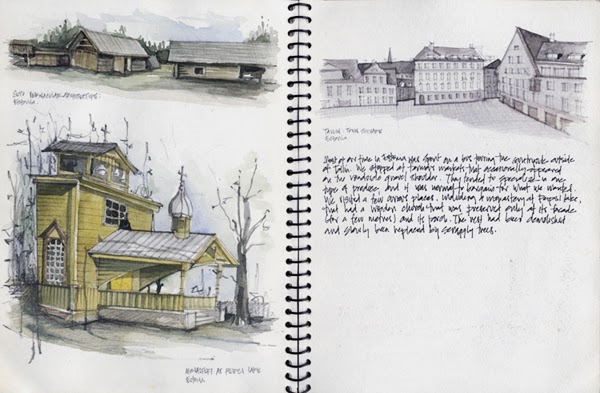 SETU VERNACULAR ARCHITECTURE.
ESTONIA.
MONASTERY AT PEIPSI LAKE
ESTONIA
TALLIN TOWN SQUARE
ESTONIA
Most of our time in Estonia was spent on a bus touring the countryside outside
of Tallin. We stopped at farmer's markets that occasionally appeared
on the roadside gravel shoulder. They tended to specialize in one
type of produce, but it was normal to bargain for what we wanted.
We visited a few other places, including a monastery at Peipsi Lake,
that had a wooden church that was preserved only at its facade
(for a few metres) and its porch. The rest had been demolished
and slowly been replaced by scraggly trees.